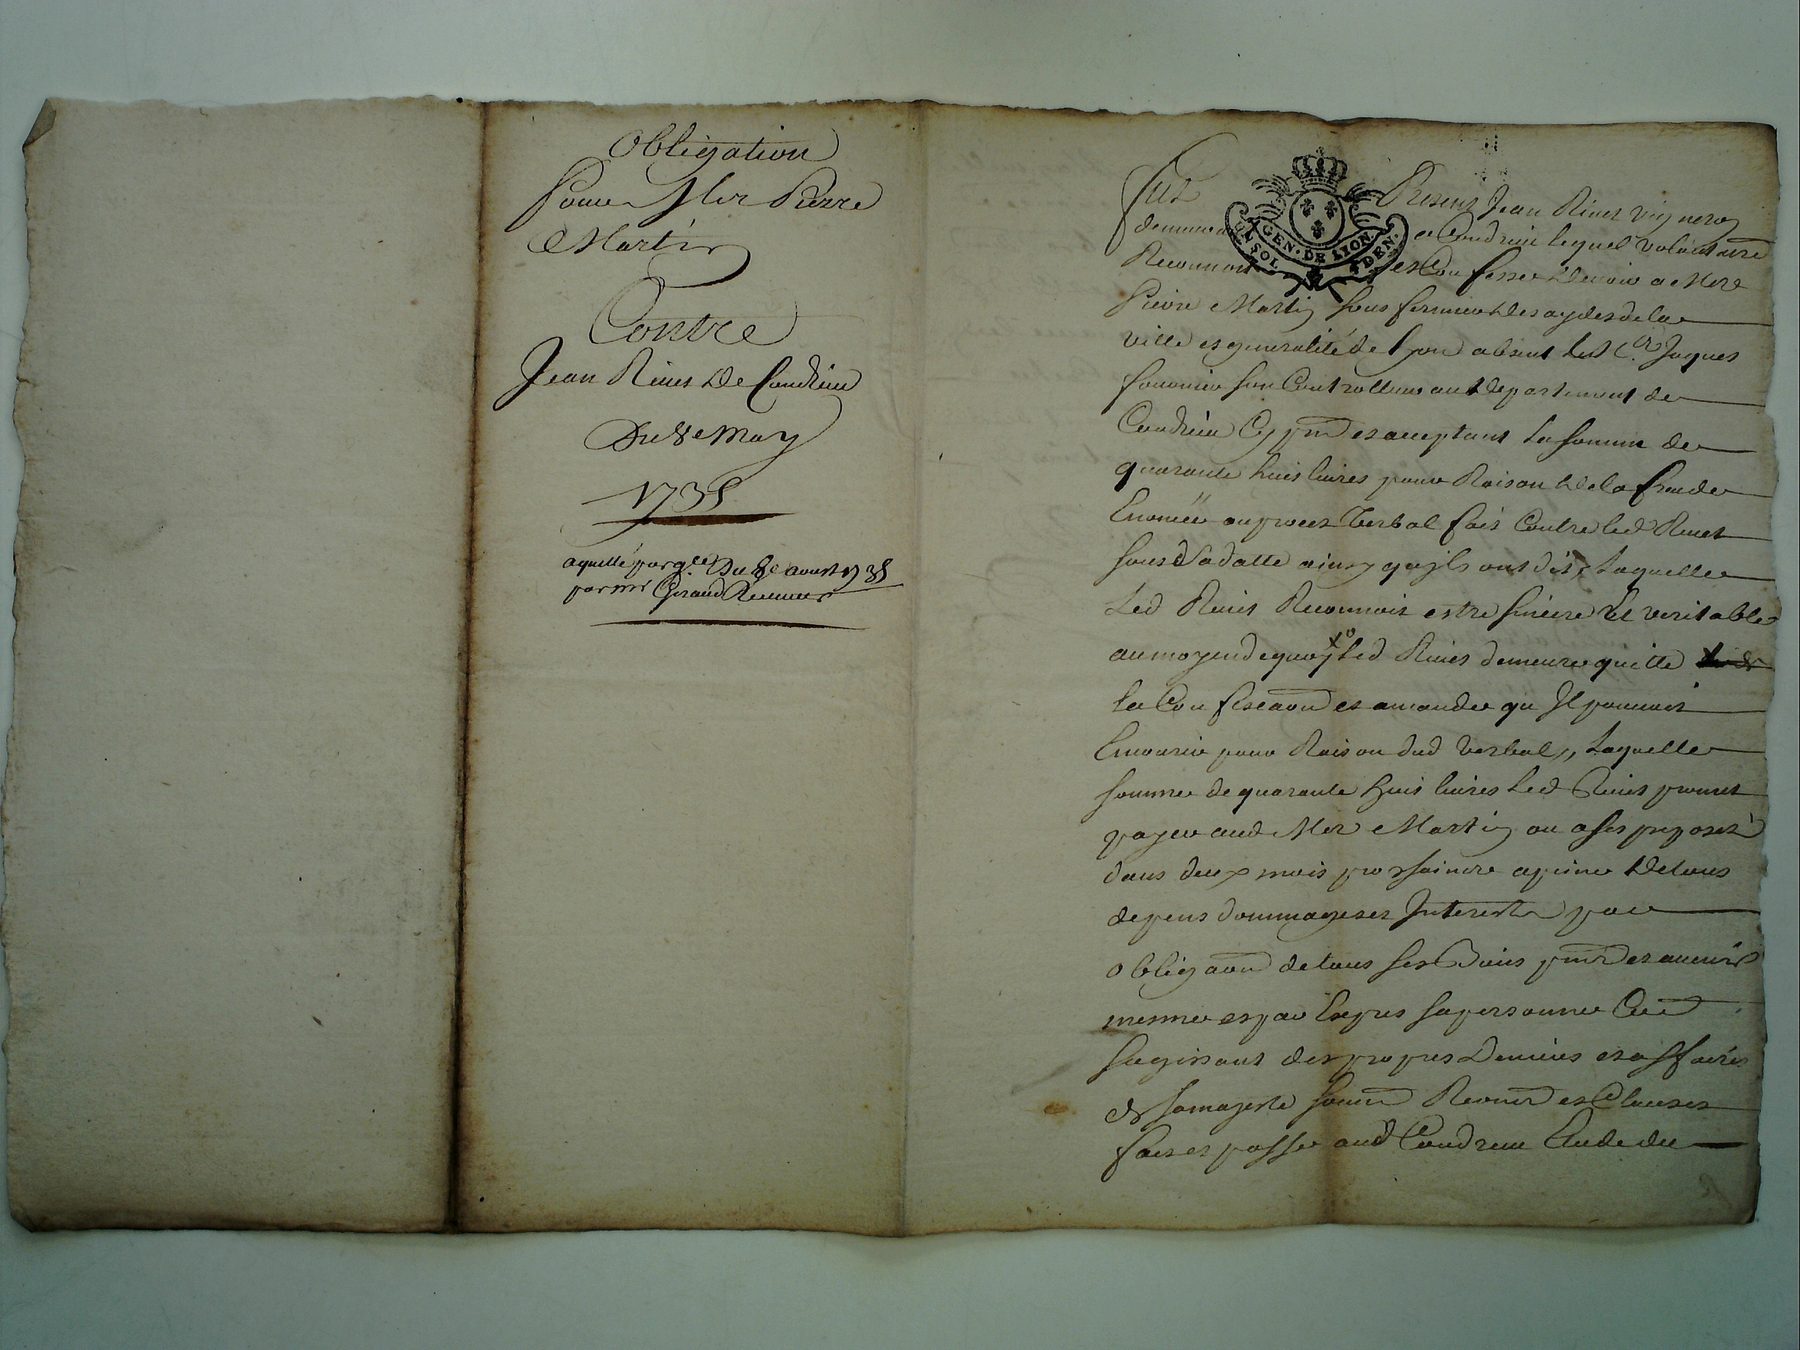 Obligation
pour Mer Pierre
Martin
Contre
Jean Rivet De Condrieu
Du 8e may
1735
aquitté par qce Du 8e aoust 1735
par mr Giraud Receveur
Fut Présent Jean Rivet vigneron
demeurant a Condrieu lequel volontairem
Reconnoit et Confesse devoir a Mere
Pierre Martin sous fermier des aydes de la
ville et generalité de Lyon absent le Sr Jaques
son Controlleur au departement de
Condrieu Cy pnt et acceptant la somme de
quarante huit livres pour Raison de la fraude
Enoncée au procez Verbal fait Contre led Rivet
sous sa datte ainsy qu'ils ont dit, Laquelle
Led Rivet Reconnoit estre sincere et veritable
au moyen de quoy led Rivet demeure quitte
la Confiscaon et amande qu Il pouvoit
Encourir pour Raison dud Verbal, Laquelle
somme de quarante huit livres Led Rivet promet
payer aud Mer Martin ou a ses preposez
dans deux mois prochains a peine de tous
depens dommages et Interests par
obligaon de tous ses Biens pnts et avenir
mesme et par Expres sa personne
sagissant des propres Deniers et affaires
de sa majesté soum Renon et Clauses
fait et passé aud Condrieu Etude du
GEN. DE LYON
SOL DEN.